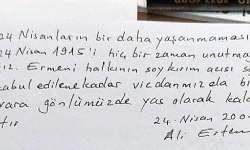 24 Nisanların bir daha yaşanmaması
24 Nisan 1915'i hiç bir zaman unutma
Ermeni halkının soykırım acısı
kabul edilene kadar vicdanımızda bi
yara gönlümüzde yas olarak kala
tır
24. Nisan 200
Ali Ertem